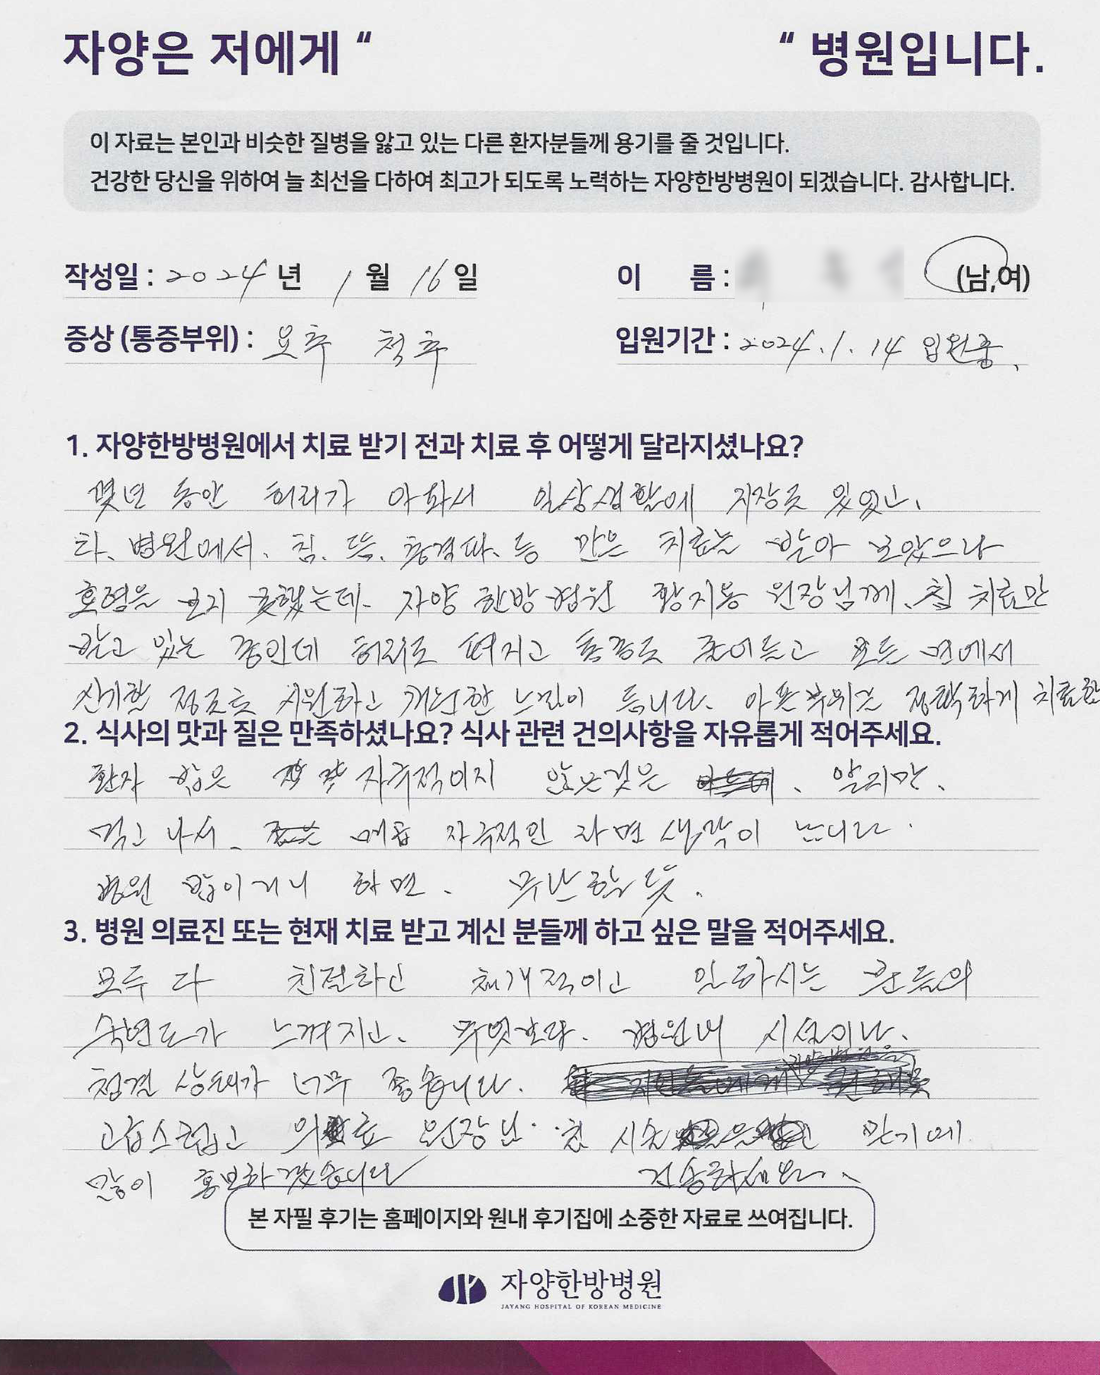 자양은 저에게 “ “ 병원입니다.
이 자료는 본인과 비슷한 질병을 앓고 있는 다른 환자분들께 용기를 줄 것입니다.
건강한 당신을 위하여 늘 최선을 다하여 최고가 되도록 노력하는 자양한방병원이 되겠습니다. 감사합니다.
작성일 : 2024 년 1 월 16 일 이 름 : (남,여)
증상 (통증부위) : 요추 척추 입원기간 : 2024.1.14 입원중.
1. 자양한방병원에서 치료 받기 전과 치료 후 어떻게 달라지셨나요?
몇년 동안 허리가 아파서 일상생활에 지장도 있었고.
타. 병원에서. 침. 뜸. 충격파. 등 같은 치료는 받아 보았으나
효험을 보지 못했는데. 자양 한방 병원 황지용 원장님께. 침 치료만
받고 있는 중인데 허리도 펴지고 통증도 줄어들고 모든 면에서
신기한 정도로 시원하고 개년한 느낌이 듭니다. 아픈 부위를 정확하게 치료한
2. 식사의 맛과 질은 만족하셨나요? 식사 관련 건의사항을 자유롭게 적어주세요.
환자 밥은 자극적이지 않는것은 . 알지만.
먹고 나서. 매콤 자극적인 라면 생각이 난니다.
병원 밥이거니 하면. 무난한 듯.
3. 병원 의료진 또는 현재 치료 받고 계신 분들께 하고 싶은 말을 적어주세요.
모두 다 친절하고 체계적이고 일 하시는 분들의
숙련도가 느껴지고. 무엇보다. 병원내 시설이나.
청결 상태가 너무 좋습니다.
고급스럽고 의료 원장님. 침 시술 받기에
많이 홍보하겠습니다 건승하세요.
본 자필 후기는 홈페이지와 원내 후기집에 소중한 자료로 쓰여집니다.
자양한방병원
JAYANG HOSPITAL OF KOREAN MEDICINE